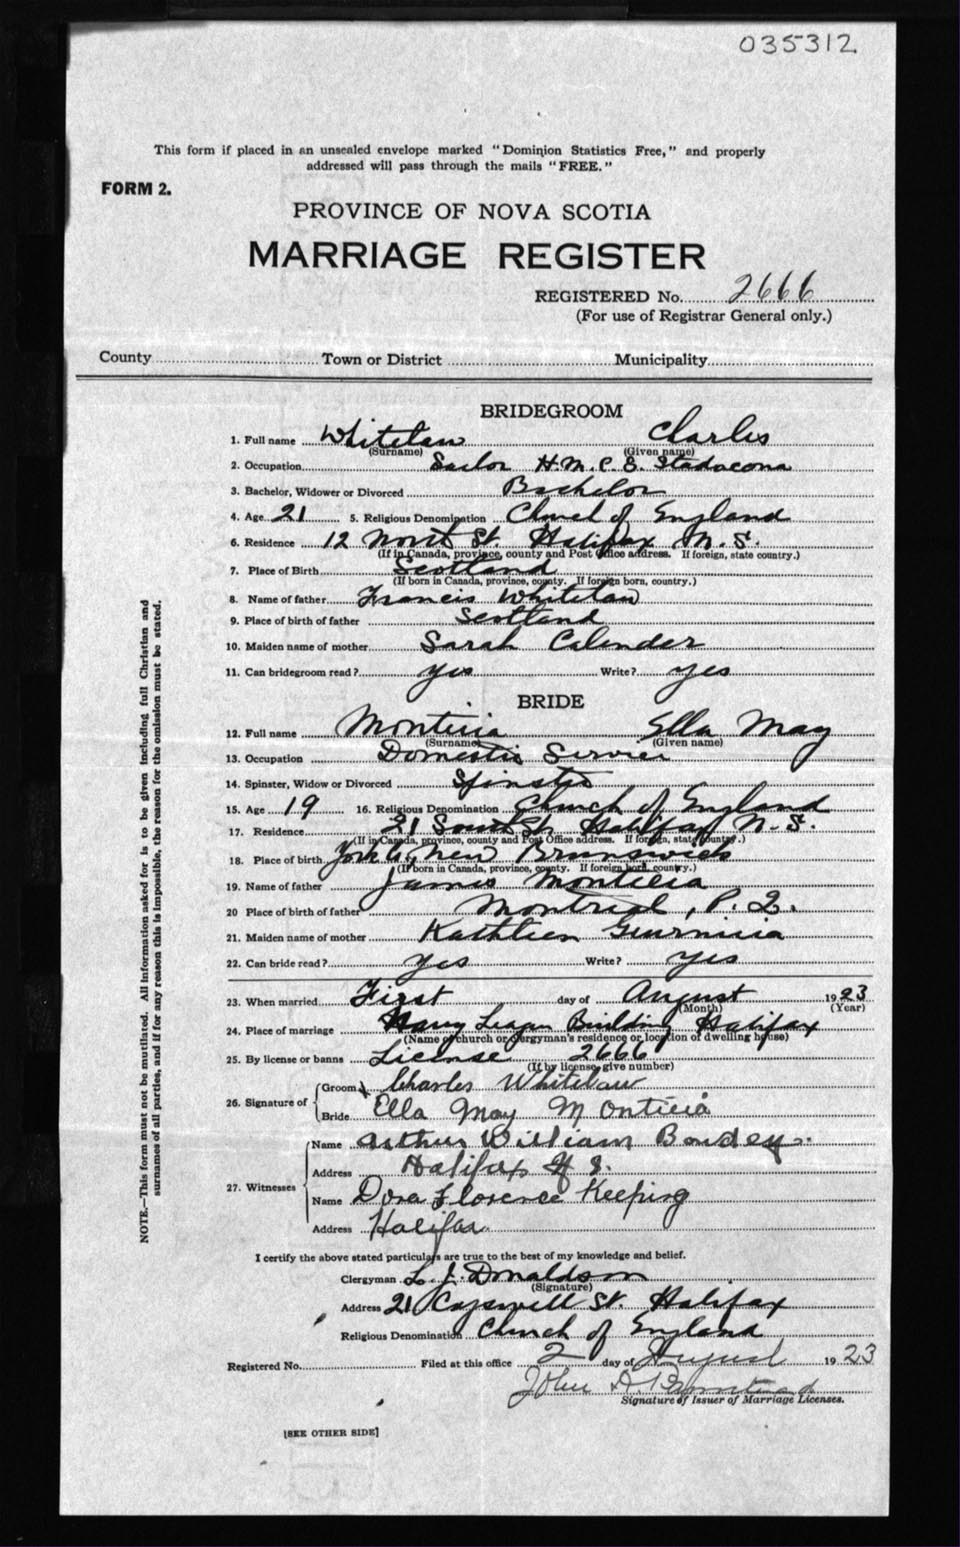 035312
This form if placed in an unsealed envelope marked "Dominion Statistics Free," and properly
addressed will pass through the mails "FREE."
FORM 2.
PROVINCE OF NOVA SCOTIA
MARRIAGE REGISTER
REGISTERED No. 2666
(For use of Registrar General only.)
County Town or District Municipality
BRIDEGROOM
1. Full name Whitelaw Charles
(Surname) (Given name)
2. Occupation Sailor H.M.C.S. Stadacona
3. Bachelor, Widower or Divorced Bachelor
4. Age 21 5. Religious Denomination Church of England
6. Residence 12 North St. Halifax, N.S.
(If in Canada, province, county and Post Office address. If foreign, state country.)
7. Place of Birth Scotland
(If born in Canada, province, county. If foreign born, country.)
8. Name of father Francis Whitelaw
9. Place of birth of father Scotland
10. Maiden name of mother Sarah Calender
11. Can bridegroom read? yes Write? yes
BRIDE
12. Full name Ella May
(Surname) (Given name)
13. Occupation Domestic Service
14. Spinster, Widow or Divorced Spinster
15. Age 19 16. Religious Denomination Church of England
17. Residence 21 South St. Halifax N.S.
(If in Canada, province, county and Post Office address. If foreign, state country.)
18. Place of birth York Co, New Brunswick
(If born in Canada, province, county. If foreign born, country.)
19. Name of father James
20 Place of birth of father Montreal, P.Q.
21. Maiden name of mother Kathleen
22. Can bride read? yes Write? yes
23. When married First day of August 1923
(Month) (Year)
24. Place of marriage Navy League Building Halifax
(Name of church or clergyman's residence or location of dwelling house)
25. By license or banns License 2666
(If by license, give number)
26. Signature of Groom Charles Whitelaw
Bride Ella May Monticia
27. Witnesses Name Arthur William
Address Halifax N.S.
Name Dora Florence Keeping
Address Halifax
I certify the above stated particulars are true to the best of my knowledge and belief.
Clergyman L. J. Donaldson
(Signature)
Address 21 Cogswell St. Halifax
Religious Denomination Church of England
Registered No. Filed at this office 2 day of August 1923
John
Signature of Issuer of Marriage Licenses.
[SEE OTHER SIDE]
NOTE.—This form must not be mutilated. All information asked for is to be given including full Christian and
surnames of all parties, and if for any reason this is impossible, the reason for the omission must be stated.